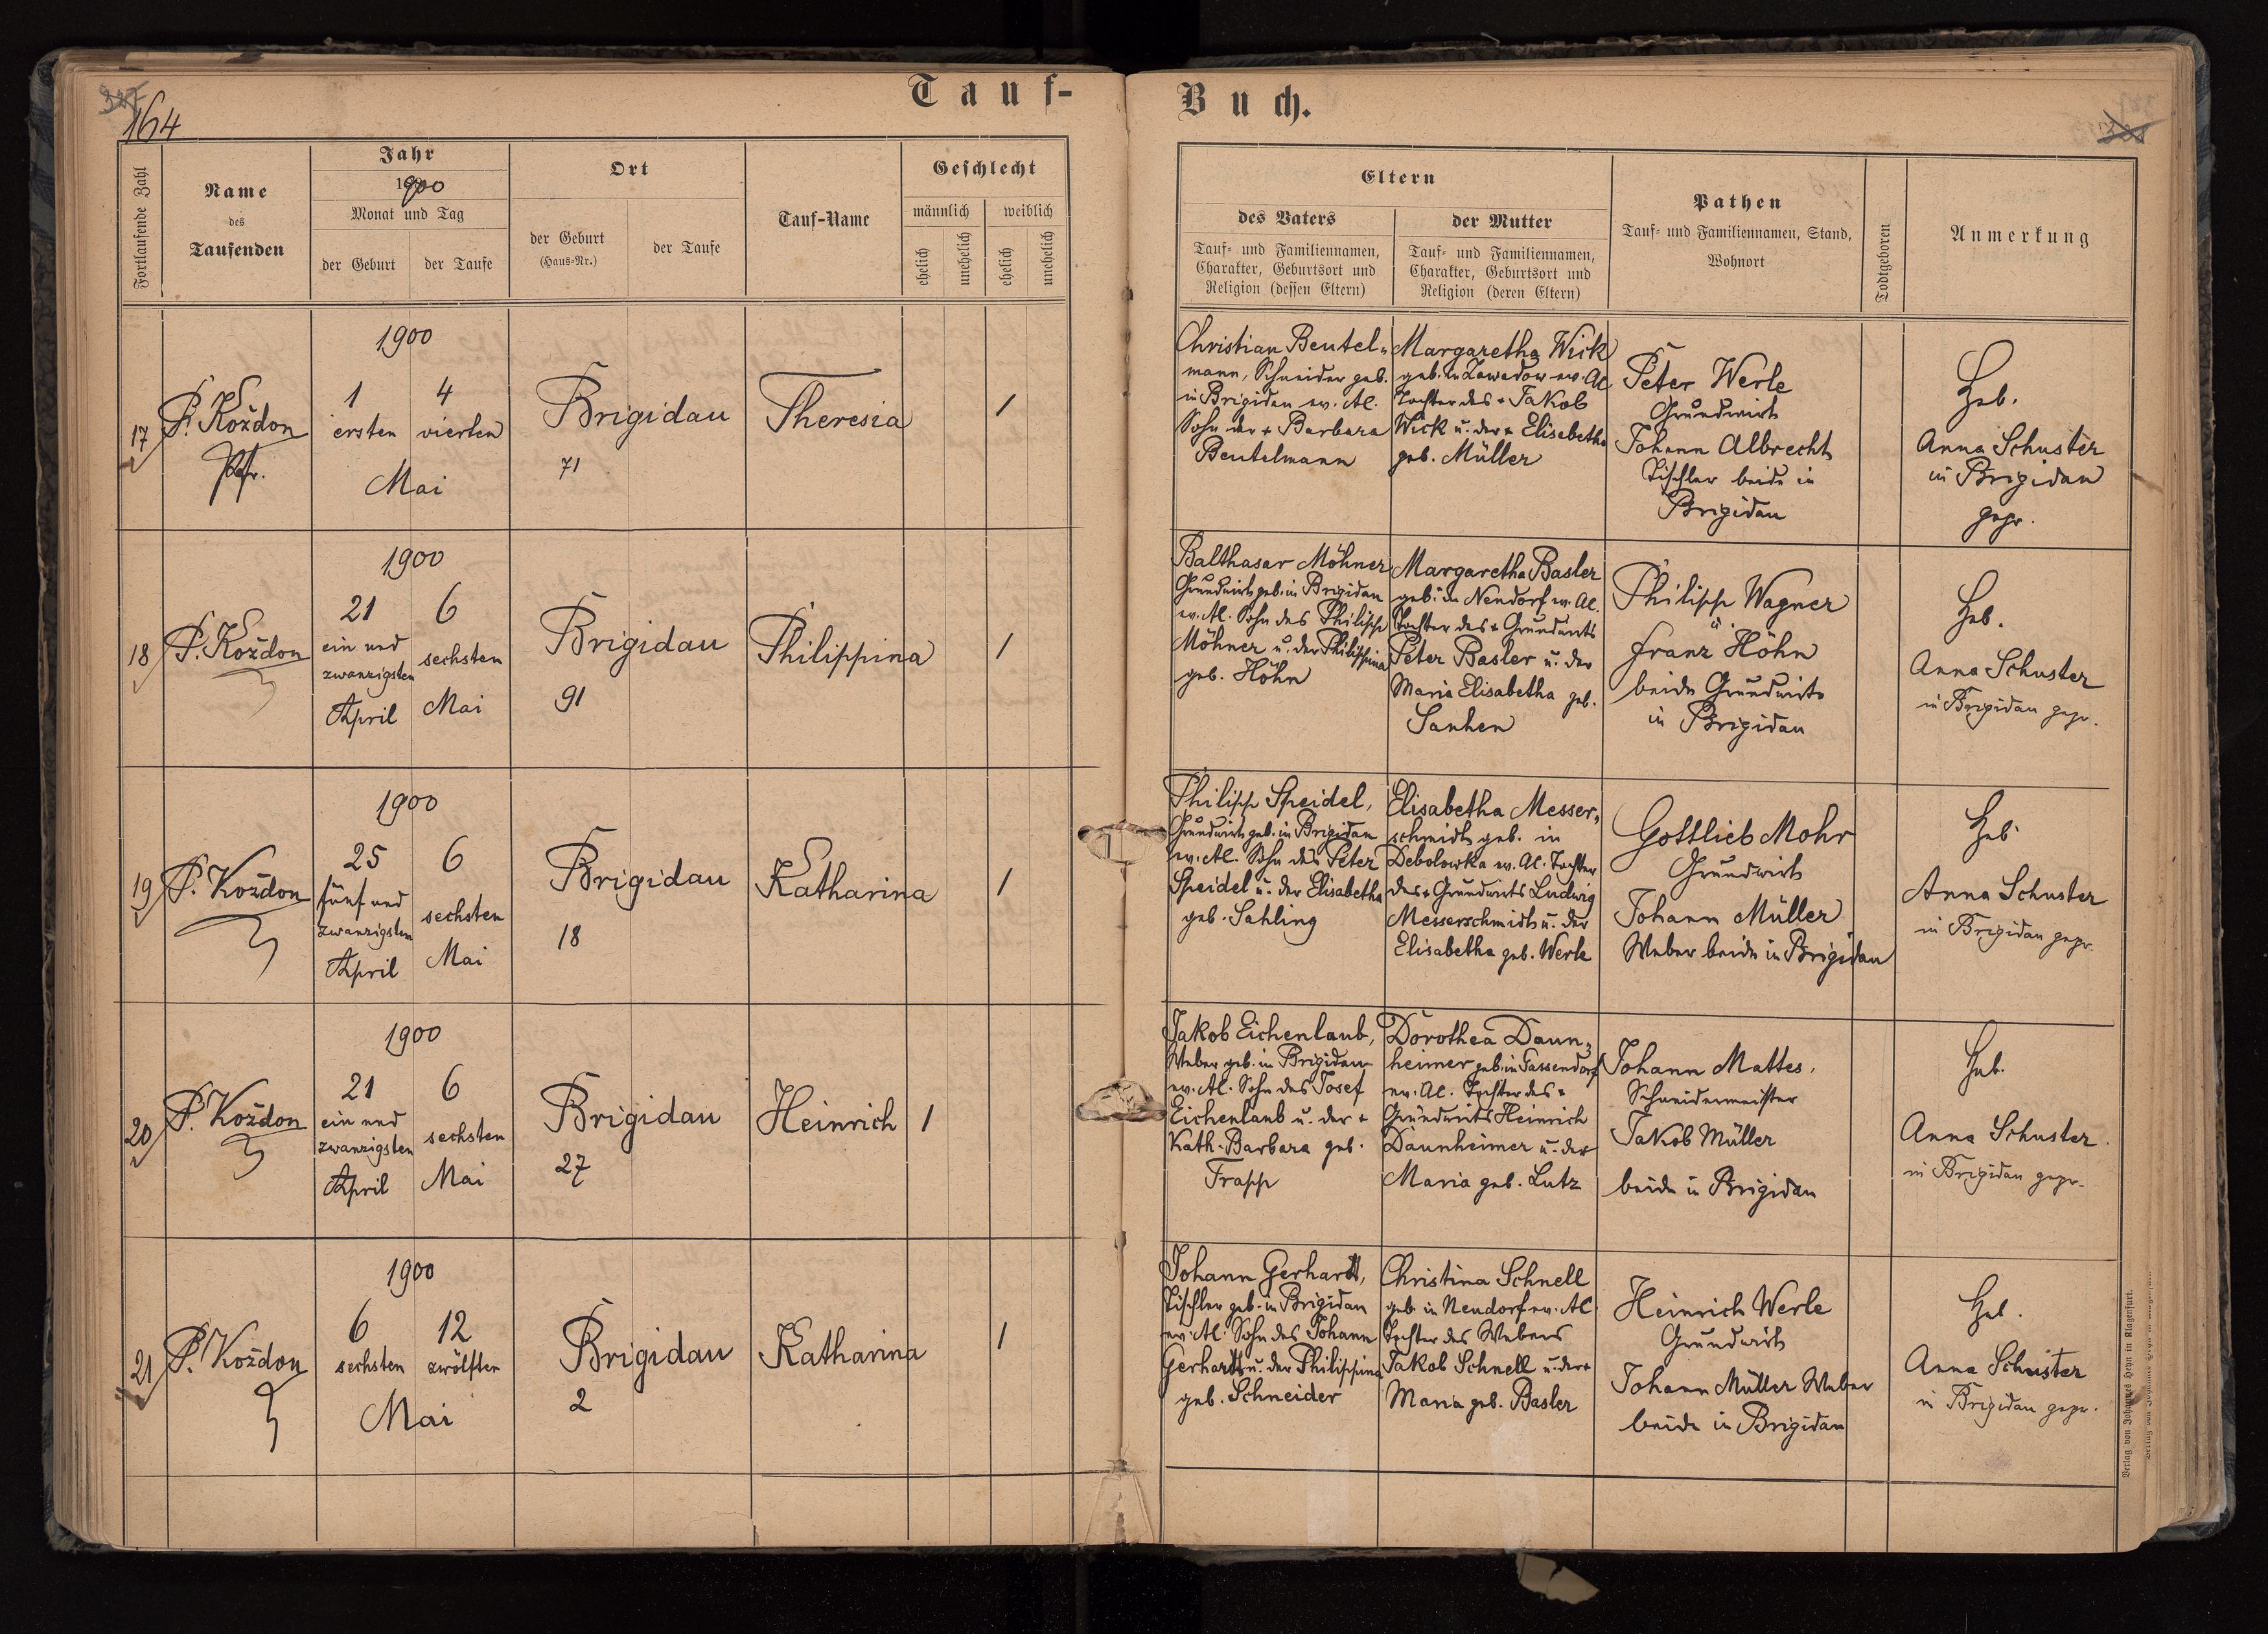 327
164
Tauf-
Buch.
381
Fortlaufende Zahl
Name
des
Taufenden
Jahr
1900
Monat und Tag
der Geburt
der Taufe
Ort
der Geburt
(Haus-Nr.)
der Taufe
Tauf-Name
Geschlecht
männlich
weiblich
ehelich
unehelich
ehelich
unehelich
Eltern
des Vaters
Tauf- und Familiennamen,
Charakter, Geburtsort und
Religion (dessen Eltern)
der Mutter
Tauf- und Familiennamen,
Charakter, Geburtsort und
Religion (deren Eltern)
Pathen
Tauf- und Familiennamen, Stand,
Wohnort
Todtgeboren
Anmerkung
17
P. Koždon
Pfr.
1900
1
ersten
4
vierten
Mai
Brigidau
71
Theresia
1
Christian Beutel-
mann, Schneider geb.
in Brigidau ev. Al.
Sohn der + Barbara
Beutelmann
Margaretha Wick
geb. in Zawadow ev. Al
Tochter des + Jakob
Wick u. der + Elisabetha
geb. Müller
Peter Werle
Grundwirth
Johann Albrecht
Tischler beide in
Brigidau
Heb.
Anna Schuster
in Brigidau
gepr.
18
P. Koždon
1900
21
ein und
zwanzigsten
April
6
sechsten
Mai
Brigidau
91
Philippina
1
Balthasar Möhner
Grundwirth geb. in Brigidau
ev. Al. Sohn des Philipp
Möhner u. der Philippina
geb. Höhn
Margaretha Basler
geb. in Neudorf ev. Al.
Tochter des + Grundwirts
Peter Basler u. der
Maria Elisabetha geb.
Sanhen
Philipp Wagner
u.
Franz Höhn
beide Grundwirte
in Brigidau
Heb.
Anna Schuster
in Brigidau gepr.
19
P. Koždon
1900
25
fünf und
zwanzigsten
April
6
sechsten
Mai
Brigidau
18
Katharina
1
Philipp Speidel,
Grundwirth geb. in Brigidau
ev. Al. Sohn des Peter
Speidel u. der Elisabetha
geb. Sahling
Elisabetha Messer-
schmidt geb. in
Debolowka ev. Al. Tochter
des + Grundwirts Ludwig
Messerschmidt u. der
Elisabetha geb. Werle
Gottlieb Mohr
Grundwirth
Johann Müller
Weber beide in Brigidau
Heb.
Anna Schuster
in Brigidau gepr.
20
P. Koždon
1900
21
ein und
zwanzigsten
April
6
sechsten
Mai
Brigidau
27
Heinrich
1
Jakob Eichenlaub,
Weber geb. in Brigidau
ev. Al. Sohn des Josef
Eichenlaub u. der +
Kath. Barbara geb.
Trapp
Dorothea Daun-
heimer geb. in Gassendorf
ev. Al. Tochter des +
Grundwirts Heinrich
Daunheimer u. der
Maria geb. Lutz
Johann Mattes,
Schneidermeister
Jakob Müller
beide in Brigidau
Heb.
Anna Schuster
in Brigidau gepr.
21
P. Koždon
1900
6
sechsten
12
zwölften
Mai
Brigidau
2
Katharina
1
Johann Gerhardt,
Tischler geb. in Brigidau
ev. Al. Sohn des Johann
Gerhardt u. der Philippina
geb. Schneider
Christina Schnell
geb. in Neudorf ev. Al.
Tochter des Webers
Jakob Schnell u. der +
Maria geb. Basler
Heinrich Werle
Grundwirth
Johann Müller Weber
beide in Brigidau
Heb.
Anna Schuster
in Brigidau gepr.
Verlag von Johannes Heyn in Klagenfurt.